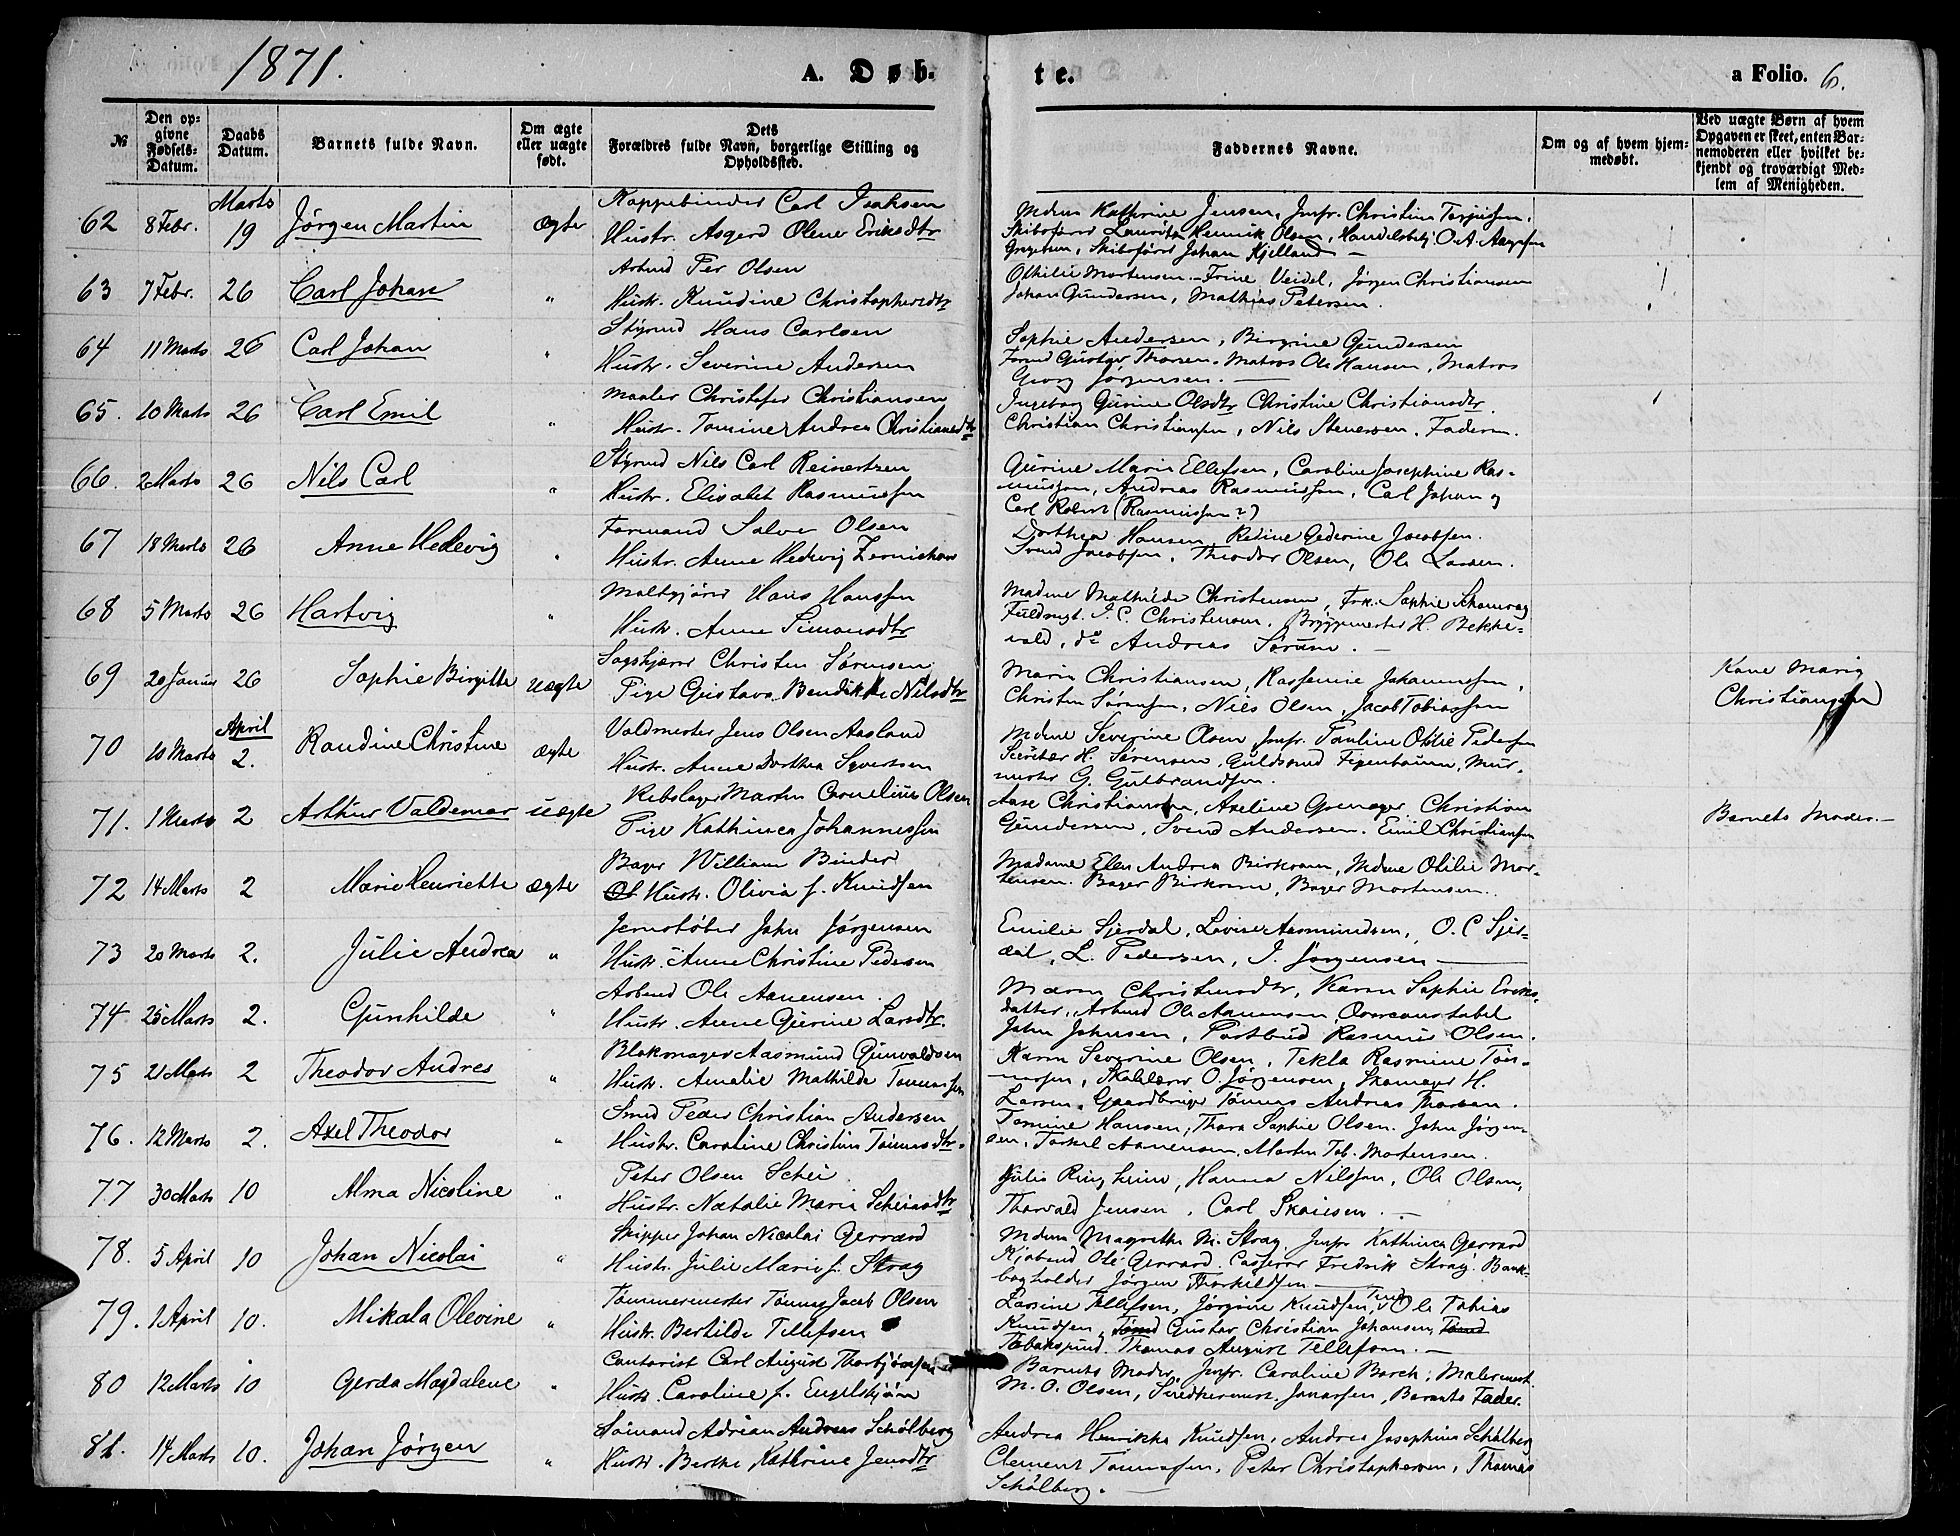 1871.
A. Døb-
te.
a Folio. 6.
№
Den op-
givne
Fødsels-
Datum.
Daabs
Datum.
Barnets fulde Navn.
Om ægte
eller uægte
født.
Dets
Forældres fulde Navn, borgerlige Stilling og
Opholdssted.
Faddernes Navne.
Om og af hvem hjem-
medøbt.
Ved uægte Børn af hvem
Opgaven er skeet, enten Bar-
nemoderen eller hvilket be-
kjendt og troværdigt Med-
lem af Menigheden.
62 8 Febr. Marts 19 Jørgen Martin ægte
Carl Isaksen
Hustr. Asgerd Olene Eriksdtr
Mdme Kathrine Jensen, Jmfr. Christine Terjesen,
Skibsfører Lauritz Henrik Olsen, O. A. Aagesen
Skibsfører Johan Kjelland —
63 7 Febr. 26 Carl Johan "
Arbmd Per Olsen
Hustr. Knudine Christophersdtr
Othilie Mortensen. Trine Veidel, Jørgen Christiansen
Johan Gundersen, Mathias Petersen.
64 11 Marts 26 Carl Johan "
Styrmd Hans Carlsen
Hustr. Severine Andersen
Sophie Andersen, Birgine Gundersen
Gustav Thorsen. Matros Ole Hansen, Matros
Georg Jørgensen. —
65. 10 Marts 26 Carl Emil "
Maaler Christofer Christiansen
Hustr. Tomine Andrea Christiansdtr
Ingeborg Gurine Olsdtr Christine Christiansdtr.
Christian Christiansen, Nils Stenersen. Faderen.
66. 2 Marts 26 Nils Carl "
Styrmd Nils Carl Reinertzen
Hustr. Elisabet Rasmussen
Gurine Marie Ellefsen, Caroline Josephine Ras-
mussen, Andreas Rasmussen, Carl Johan og
Carl Robert (Rasmussen?)
67 18 Marts 26 Anne Hedevig "
Formand Salve Olsen
Hustr. Anne Hedevig Zernichow
Dorthea Hansen, Gederine Jacobsen.
Svend Jacobsen, Theodor Olsen, Ole Larsen.
68 5 Marts 26 Hartvig "
Maltgjører Hans Hansen
Hustr. Anne Simonsdtr
Madme Mathilde Christensen, Frk. Sophie
Fuldmgt. I. C. Christensen. Bryggemester H. Bekke-
vold, do Andreas Sørum. —
69 20 Januar 26 Sophie Birgitte uægte
Christen Sørensen
Pige Gustava Bendikte Nilsdtr
Marie Christiansen, Rassemie Johannesen,
Christen Sørensen, Nils Olsen, Jacob Tobiassen
Kone Marie
Christiansen
70 10 Marts April 2. Randine Christine ægte
Valdmester Jens Olsen Aasland
Hustr. Anne Dorthea Syvertsen
Mdme Severine Olsen Jmfr. Pauline Otilie Pedersen
H. Sørensen, Guldsmd Figenbaum, Mur-
mester G. Gulbrandsen.
71. 1 Marts 2 Arthur Valdemar uægte
Rebslager Martin Cornelius Olsen
Pige Kathinca Johannessen
Aase Christiansen, Axeline Grenager Christian
Gundersen, Svend Andersen. Emil Christiansen
Barnets Moder. —
72 14 Marts 2 Marie Henriette ægte
Bager William Binder
Hustr. Olivia f. Knudsen
Madame Elen Andrea Birkrem, Mdme Otilie Mor-
tensen. Bager Birkrem, Bager Mortensen.
73 20 Marts 2. Julie Andrea "
Jernstøber John Jørgensen
Hustr. Anne Christine Pedersen
Emilie Sjerdal, Lovise Aasmundsen, O. C Sjer-
dal, L. Pedersen, J. Jørgensen —
74 25 Marts 2. Gunhilde "
Arbmd Ole Aanensen.
Hustr. Anne Gurine Larsdtr.
Maren Christensdtr, Karen Sophie Eriks-
datter, Arbmd Ole Aanensen Overconstabel
John Johnsen, Postbud Rasmus Olsen.
75 21 Marts 2 Theodor Andres "
Blokmager Aasmund Gunvaldsen
Hustr. Amalie Mathilde Tønnessen
Karen Severine Olsen, Tekla Rasmine Tøn-
nessen, Skolelærer O. Jørgensen, Skomager H.
Larsen, Gaardbruger Tønnes Andreas Thorsen.
76. 12 Marts 2. Axel Theodor "
Smed Peder Christian Andersen
Hustr. Caroline Christine Tønnesdtr.
Tomine Hansen, Thora Sophie Olsen. John Jørgen-
sen. Torkel Aanensen. Martin Tob. Mortensen.
77 30 Marts 10 Alma Nicoline "
Peter Olsen Schei
Hustr. Natalie Marie
Julie Ringheim, Hanna Nilssen, Ole Olsen,
Thorvald Jensen, Carl —
78. 5 April 10 Johan Nicolai "
Skipper Johan Nicolai Gerrard
Hustr. Julie Marie f. Stray
Mdme Magrethe M. Stray. Jmfr Kathinca Gerrard
Kjøbmd Ole Gerrard. Casserer Fredrik Stray. Bank-
bogholder Jørgen Thorkildsen —
79. 1 April 10. Mikala Olevine "
Tømmermester Tønnes Jacob Olsen
Hustr. Bertilde Tellefsen
Larsine Tellefsen, Jørgine Knudsen, Tmd Ole Tobias
Knudsen, Tømd Gustav Christian Johansen, Tømd
Tobakspind. Thomas August Tellefsen. —
80 12 Marts 10 Gerda Magdalene "
Contorist Carl August Thorbjørnsen
Hustr. Caroline f. Engelskjøn
Barnets Moder, Jmfr. Caroline Borch; Malermest.
M. O. Olsen, Snedkermest. Jonassen, Barnets Fader.
81. 14 Marts 10. Johan Jørgen "
Sømand Adrian Andreas Schølberg
Hustr. Berthe Kathrine Jensdtr
Andrea Henrikke Knudsen, Andrea Josephine Schølberg
Clement Tønnesen, Peter Christophersen, Thomas
Schølberg. —